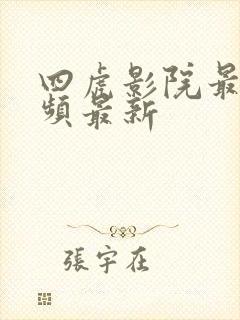 四虎影院最
頻最新
張宇在